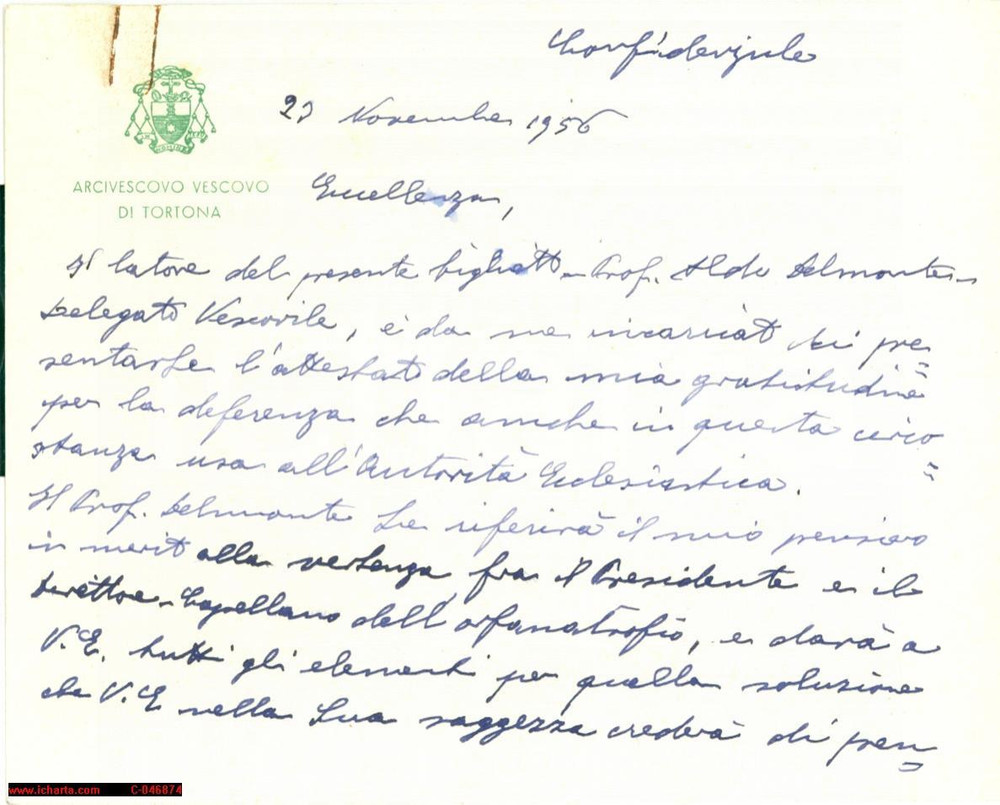 Confidenziale
23 Novembre 1956
ARCIVESCOVO VESCOVO
DI TORTONA
Eccellenza,
Il latore del presente biglietto - Prof. Aldo Delmonte -
Delegato Vescovile, è da me incaricato di pre=
sentarLe l'attestato della mia gratitudine
per la deferenza che anche in questa circo=
stanza usa all'Autorità Ecclesiastica.
Il Prof. Delmonte Le riferirà il mio pensiero
in merito alla vertenza fra il Presidente e il
Direttore - Cappellano dell'orfanatrofio, e darà a
V.E. tutti gli elementi per quella soluzione
che V.E nella Sua saggezza crederà di pren=
www.icharta.com C-046874